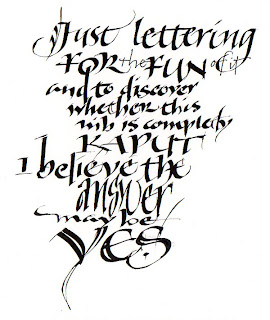 Just lettering
FOR the FUN of it
and to discover
whether this
nib is completely
KAPUT
I believe the
answer
may be
YES.